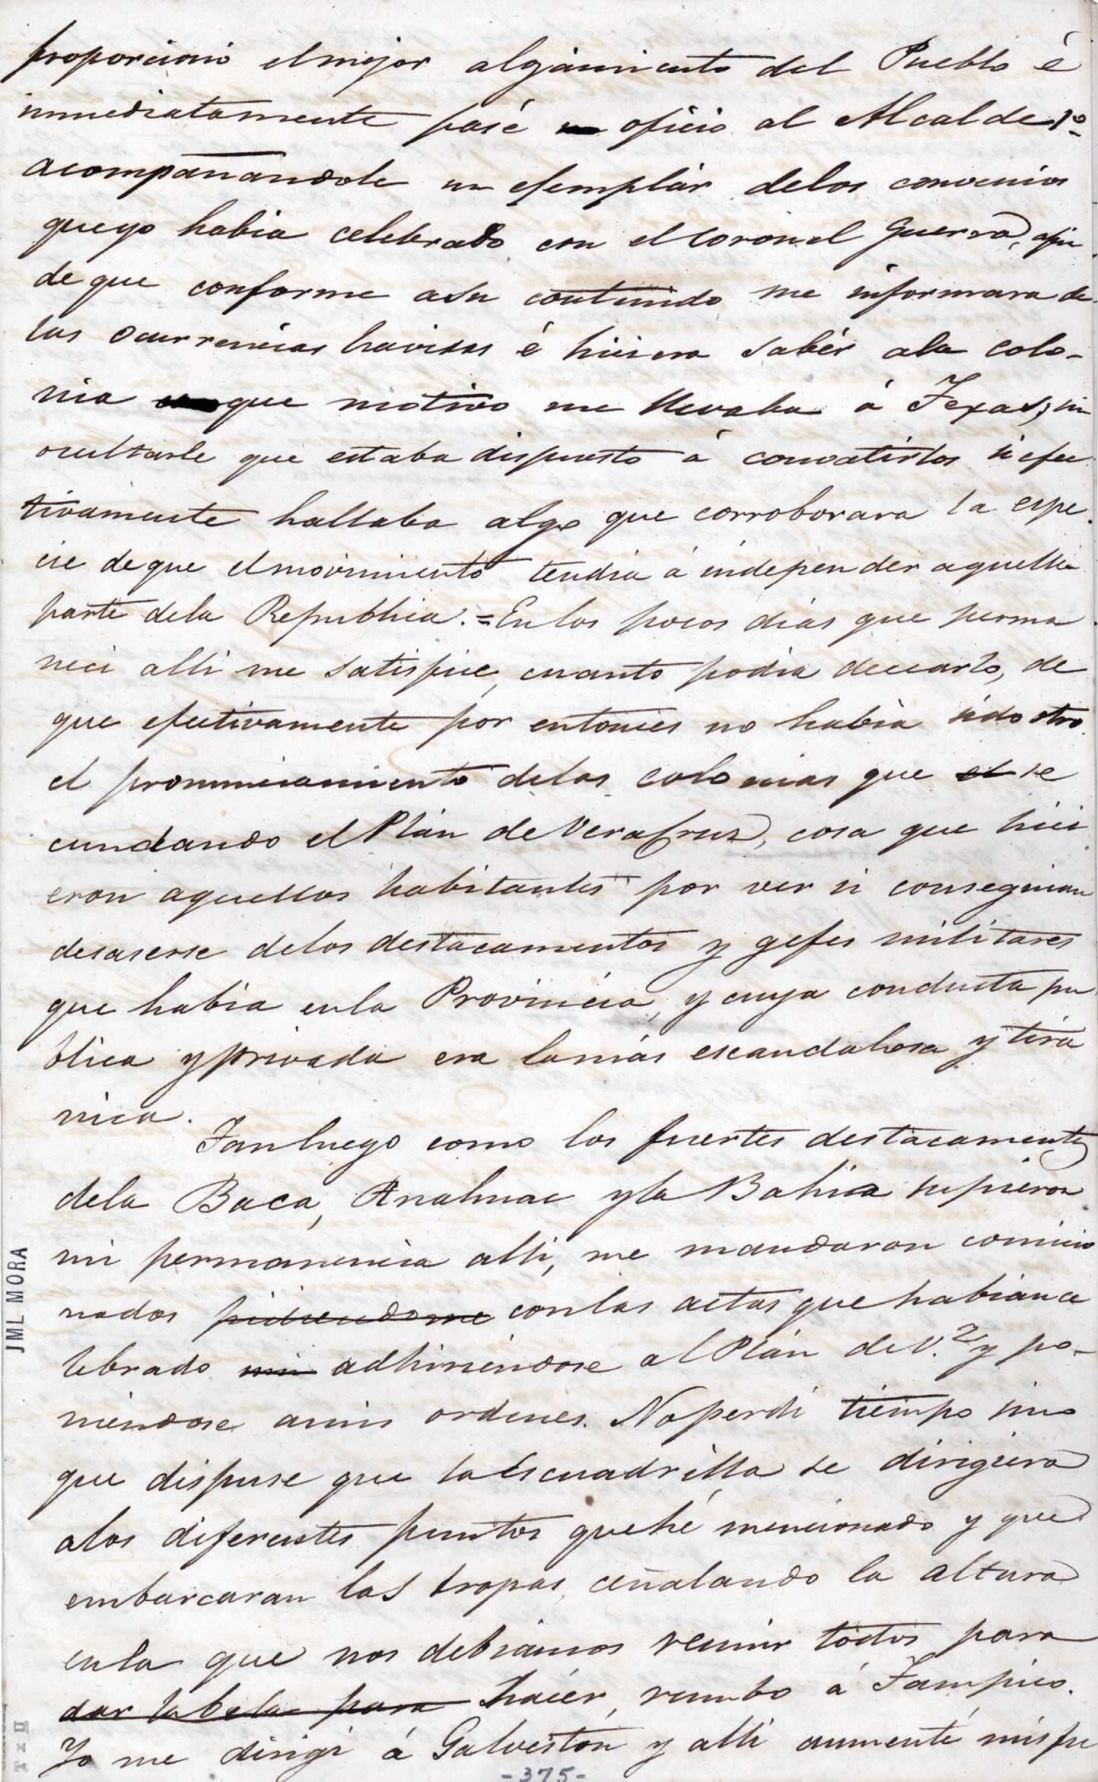 proporcionó el mejor alojamiento del Pueblo é
inmediatamente pasé un oficio al Alcalde 1º
acompañandole un ejemplar delos convenios
que yo habia celebrado con el coronel Guerra, afin
de que conforme asu contenido me informara de
las ocurrencias havidas é hiciera sabér ala colo-
nia que motivo me llevaba á Texas; sin
ocultarle que estaba dispuesto á convatirlos si efec
tivamente hallaba algo que corroborara la espe
cie de que el movimiento tendia á indepénder aquella
parte dela Republica. = En los pocos dias que perma
neci alli me satisfice, cuanto podia decearlo, de
que efectivamente por entonces no habia sido otro
el pronunciamiento delas colonias que el se
cundando el Plan de VeraCruz, cosa que hici
eron aquellos habitantes por ver si conseguian
desaserse delos destacamentos y gefes militares
que habia enla Provincia, y cuya conducta pu
blica y privada era lamás escandalosa y tira
nica.
Tanluego como los fuertes destacamentos
dela Baca, Anahuac y la Bahia supieron
mi permanencia alli, me mandaron comicio
nados pidiendome con las actas que habian ce
lebrado mi adhiriéndose al Plan de V.z y po-
niendose amis ordenes. No perdi tiempo sino
que dispuse que la escuadrilla se dirigiera
alos diferentes puntos que hé mencionado y que
embarcaran las tropas, ceñalando la altura
enla que nos debiamos reunir todos para
dar la bela para hacér rumbo á Tampico.
Yo me dirigi á Galveston y alli aumenté mis fu
-375-
JML MORA